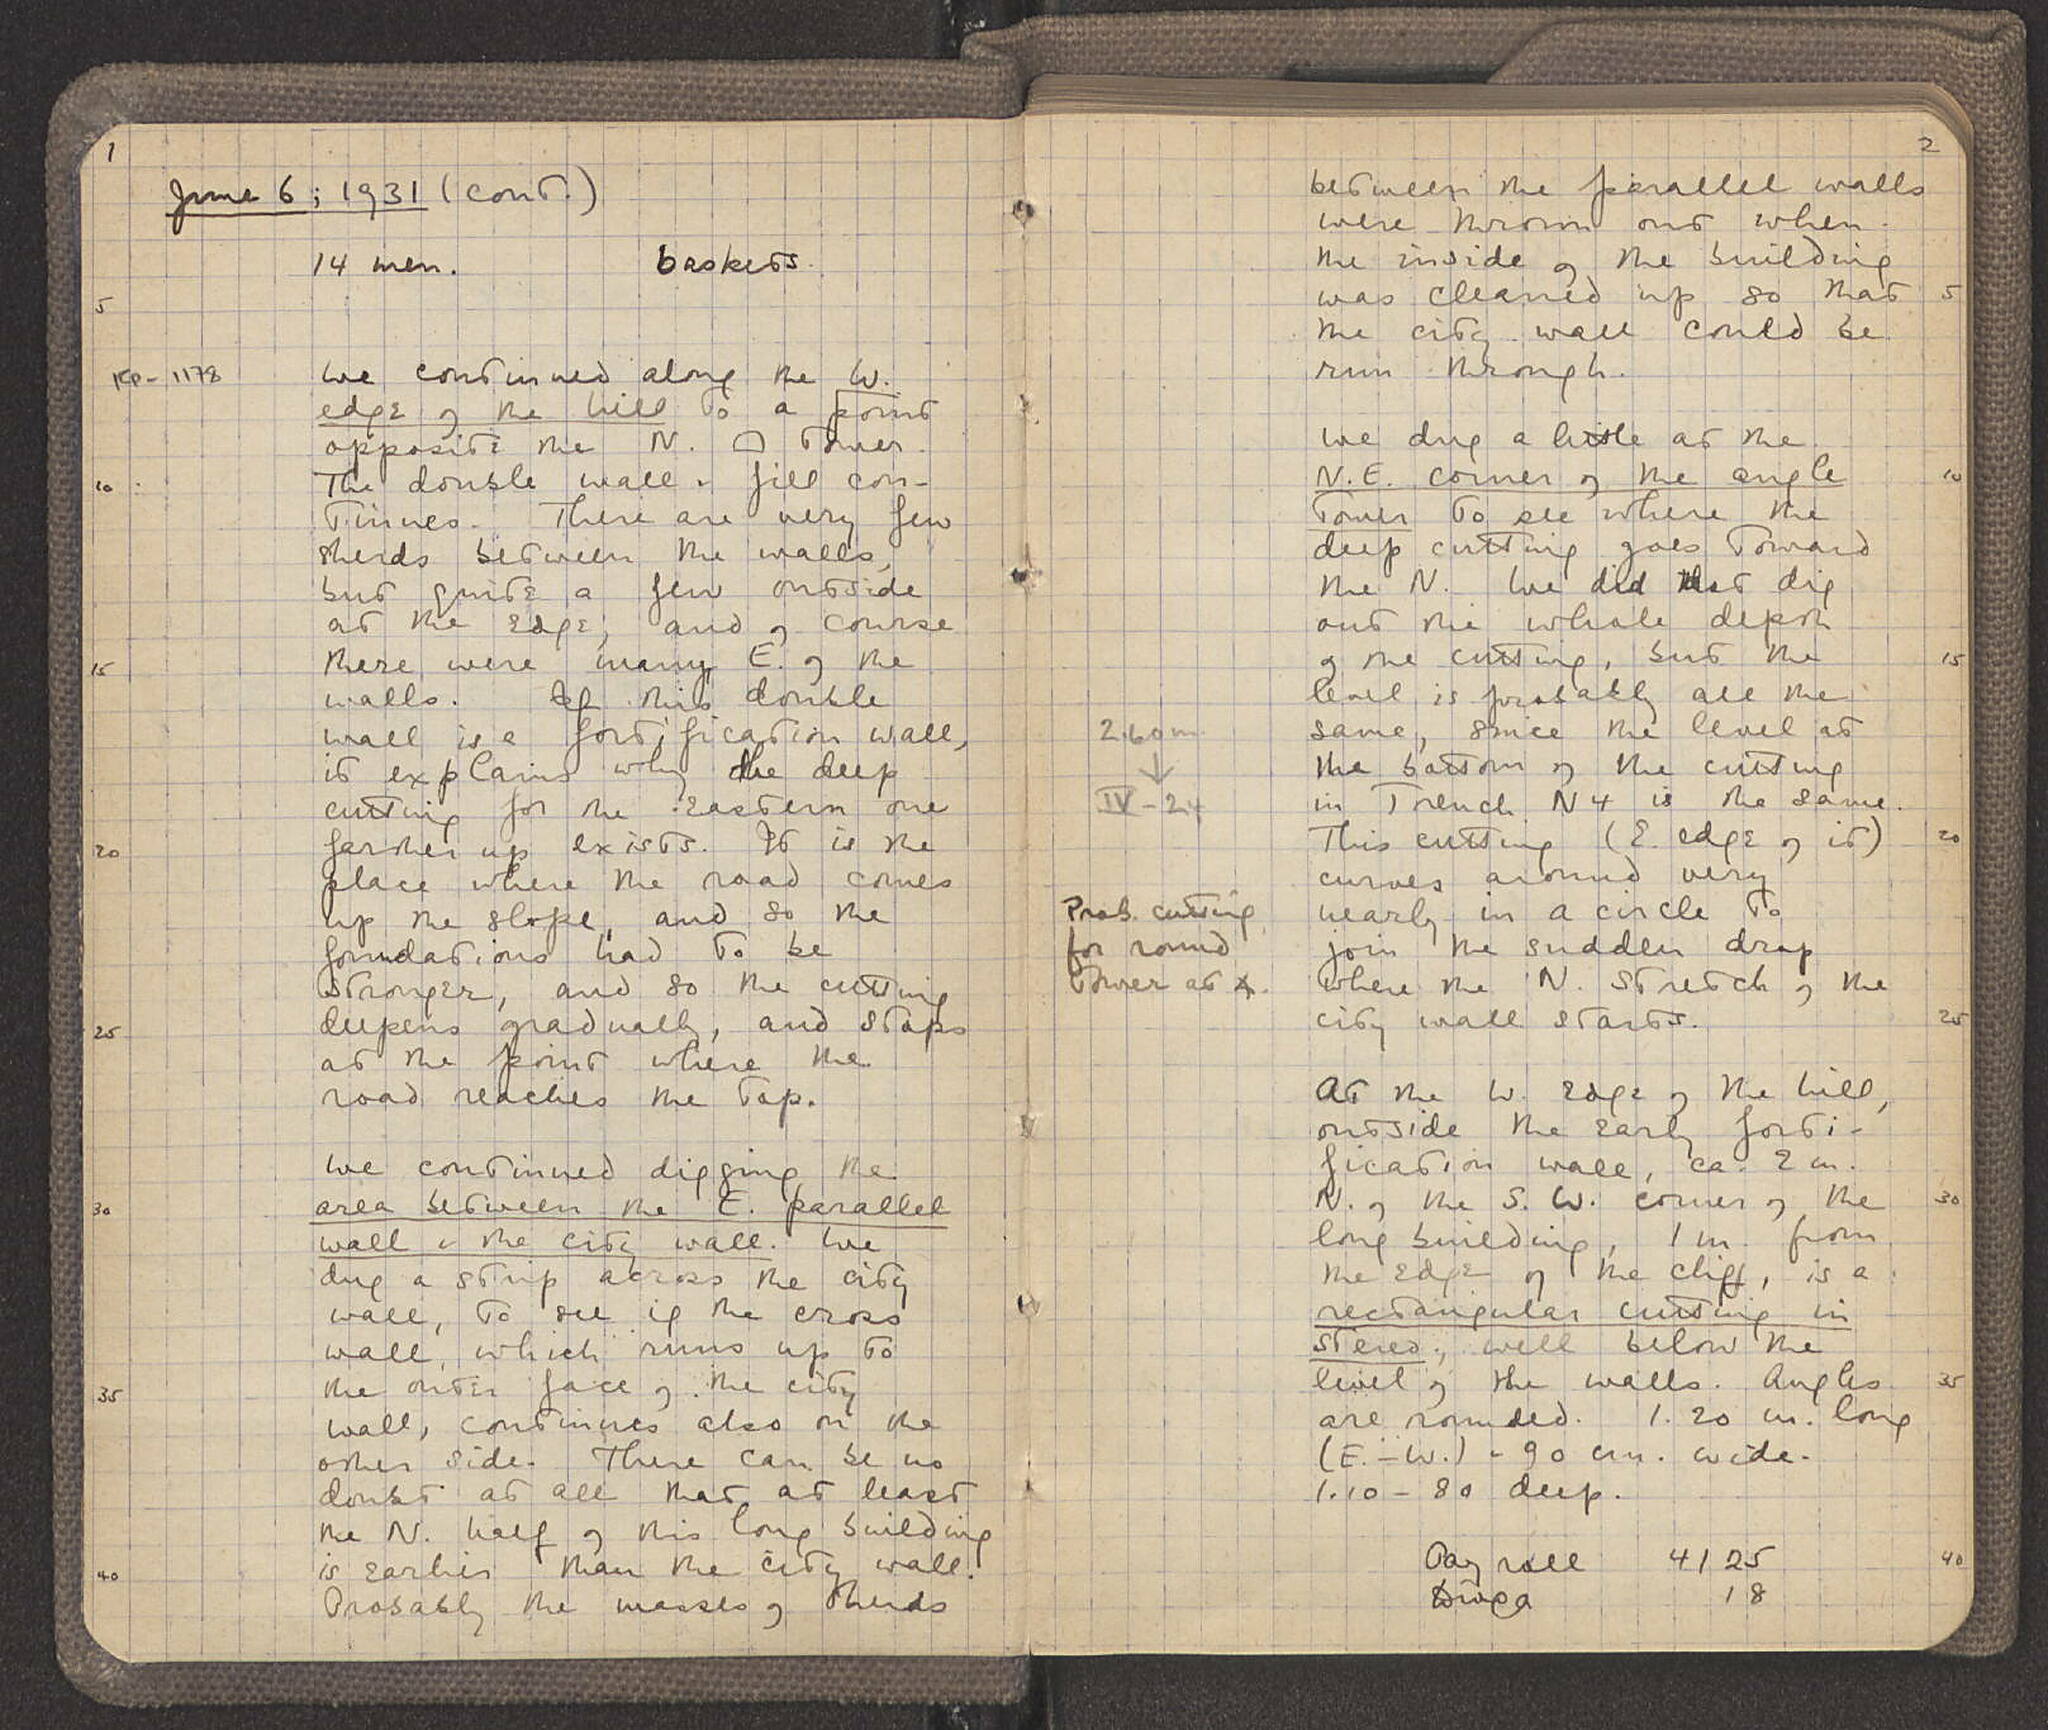 1
June 6; 1931 (cont.)
14 men. baskets.
5
KP-1178 We continued along the W.
edge of the hill to a point
opposite the N. ⌓ tower.
10 The double wall & fill con-
tinues. There are very few
sherds between the walls,
but quite a few outside
at the edge, and of course
15 there were many E. of the
walls. If this double
wall is a fortification wall,
it explains why the deep
cutting for the eastern one
20 farther up exists. It is the
place where the road comes
up the slope, and so the
foundations had to be
stronger, and so the cutting
25 deepens gradually, and stops
at the point where the
road reaches the top.
We continued digging the
30 area between the E. parallel
wall & the city wall. We
dug a strip across the city
wall, to see if the cross
wall, which runs up to
35 the outer face of the city
wall, continues also on the
other side. There can be no
doubt at all that at least
the N. half of this long building
40 is earlier than the city wall.
Probably the masses of sherds
2
between the parallel walls
were thrown out when
the inside of the building
was cleaned up so that 5
the city wall could be
run through.
We dug a little at the
N.E. corner of the angle 10
tower to see where the
deep cutting goes toward
the N. We did not dig
out the whole depth
of the cutting, but the 15
level is probably all the
2.60 m same, since the level at
↓ the bottom of the cutting
IV-24 in Trench N4 is the same.
This cutting (E. edge of it) 20
curves around very
Prob. cutting nearly in a circle to
for round join the sudden drop
tower at where the N. stretch of the
city wall starts. 25
At the W. edge of the hill,
outside the early forti-
fication wall, ca. 2 m.
N. of the S.W. corner of the 30
long building, 1 m. from
the edge of the cliff, is a
rectangular cutting in
stereo, well below the
level of the walls. Angles 35
are rounded. 1.20 m. long
(E.-W.) - 90 cm. wide.
1.10 - 80 deep.
Pay roll 4125 40
18